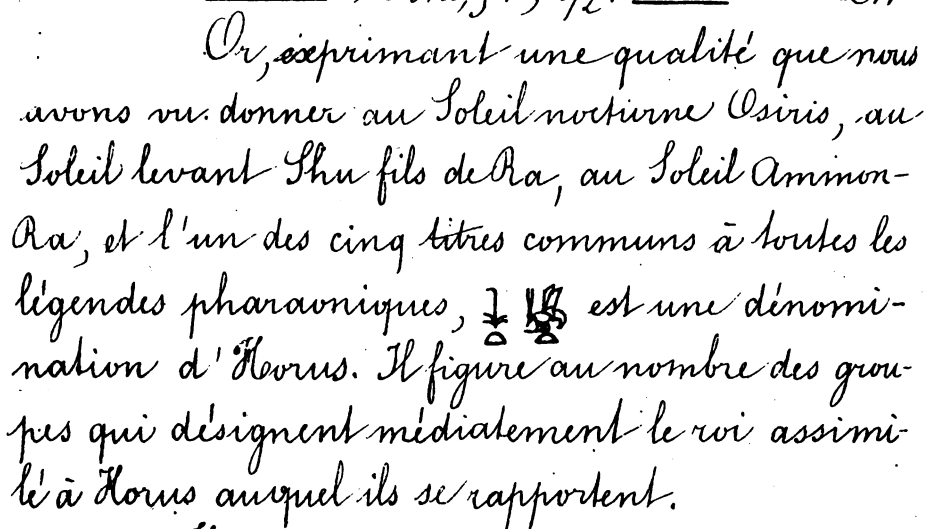 Or, exprimant une qualité que nous
avons vu donner au Soleil nocturne Osiris, au
Soleil levant Shu fils de Ra, au Soleil Ammon-
Ra, et l'un des cinq titres communs à toutes les
légendes pharaoniques, 𓇓𓏏 𓆤𓏏 est une dénomi-
nation d'Horus. Il figure au nombre des grou-
pes qui désignent médiatement le roi assimi-
lé à Horus auquel ils se rapportent.